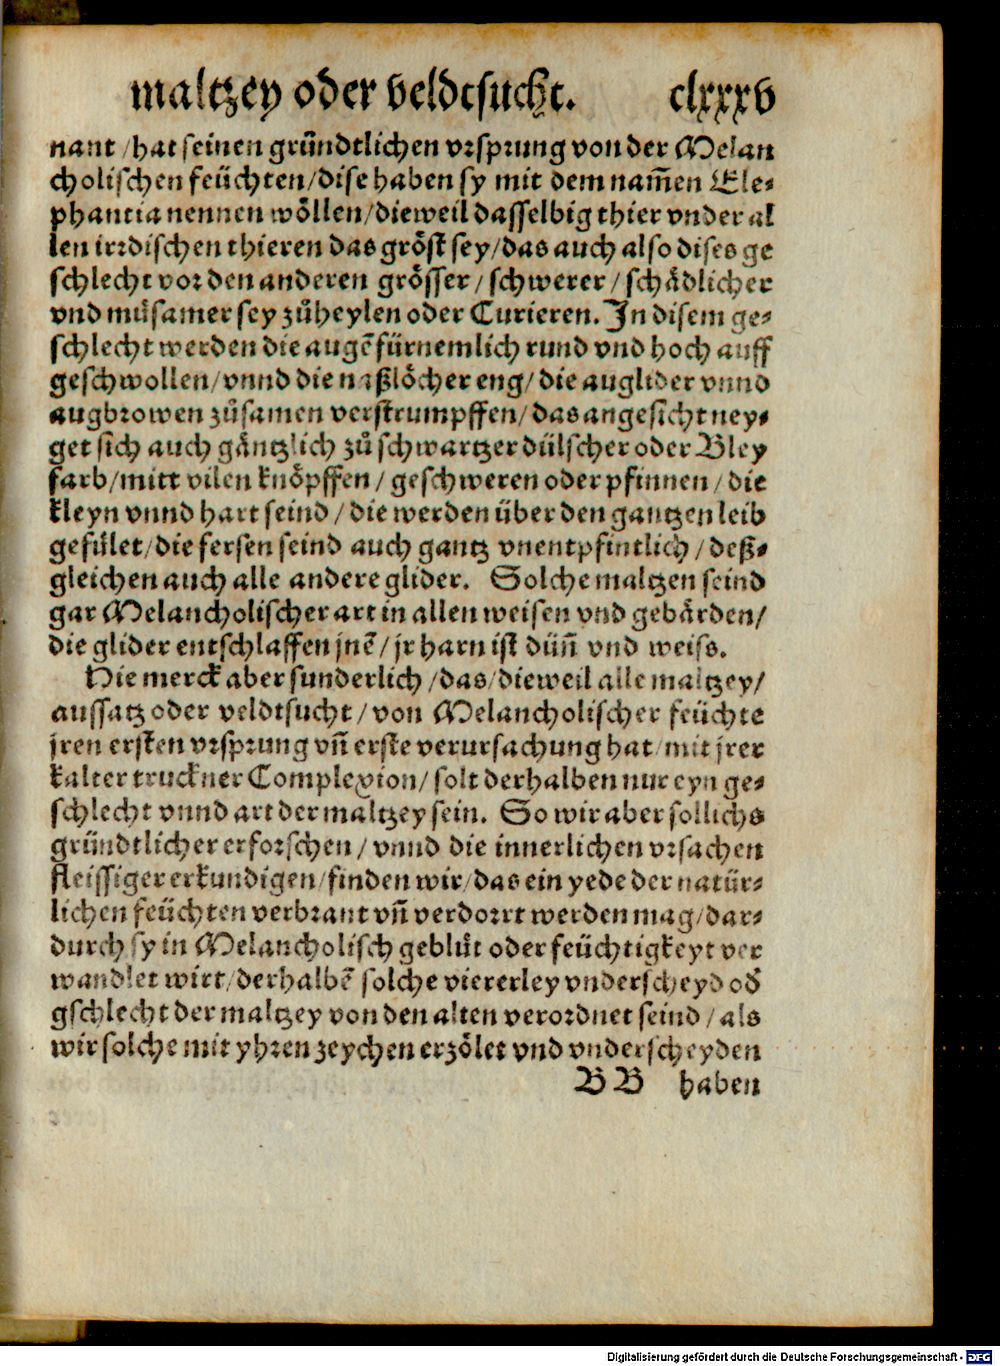 maltzey oder veldtsucht. clxxxv
nant /hat seinen gründtlichen vrsprung von der Melan
cholischen feüchten/dise haben sy mit dem nam̄en Ele⸗
phantia nennen wöllen/dieweil dasselbig thier vnder al
len irrdischen thieren das gröst sey/das auch also dises ge
schlecht vor den anderen grösser/schwerer/schädlicher
vnd müsamer sey zůheylen oder Curieren. In disem ge⸗
schlecht werden die augē fürnemlich rund vnd hoch auff
geschwollen/vnnd die naßlöcher eng/die auglider vnnd
augbrowen zůsamen verstrumpffen/das angesicht ney⸗
get sich auch gäntzlich zů schwartzer dülscher oder Bley
farb/mitt vilen knöpffen/geschweren oder pfinnen/die
kleyn vnnd hart seind/die werden über den gantzen leib
gefület/die fersen seind auch gantz vnentpfintlich/deß⸗
gleichen auch alle andere glider. Solche maltzen seind
gar Melancholischer art in allen weisen vnd gebärden/
die glider entschlaffen jnē/jr harn ist dün̄ vnd weiss.
Hie merck aber sunderlich/das/dieweil alle maltzey/
aussatz oder veldtsucht/von Melancholischer feüchte
jren ersten vrsprung vn̄ erste verursachung hat/mit jrer
kalter truckner Complexion/solt derhalben nur eyn ge⸗
schlecht vnnd art der maltzey sein. So wir aber sollichs
gründtlicher erforschen/vnnd die innerlichen vrsachen
fleissiger erkundigen/finden wir/das ein yede der natür⸗
lichen feüchten verbrant vn̄ verdorrt werden mag/dar⸗
durch sy in Melancholisch geblüt oder feüchtigkeyt ver
wandlet wirt/derhalbē solche viererley vnderscheyd od̄
gschlecht der maltzey von den alten verordnet seind/als
wir solche mit yhren zeychen erzölet vnd vnderscheyden
BB haben
Digitalisierung gefördert durch die Deutsche Forschungsgemeinschaft - DFG